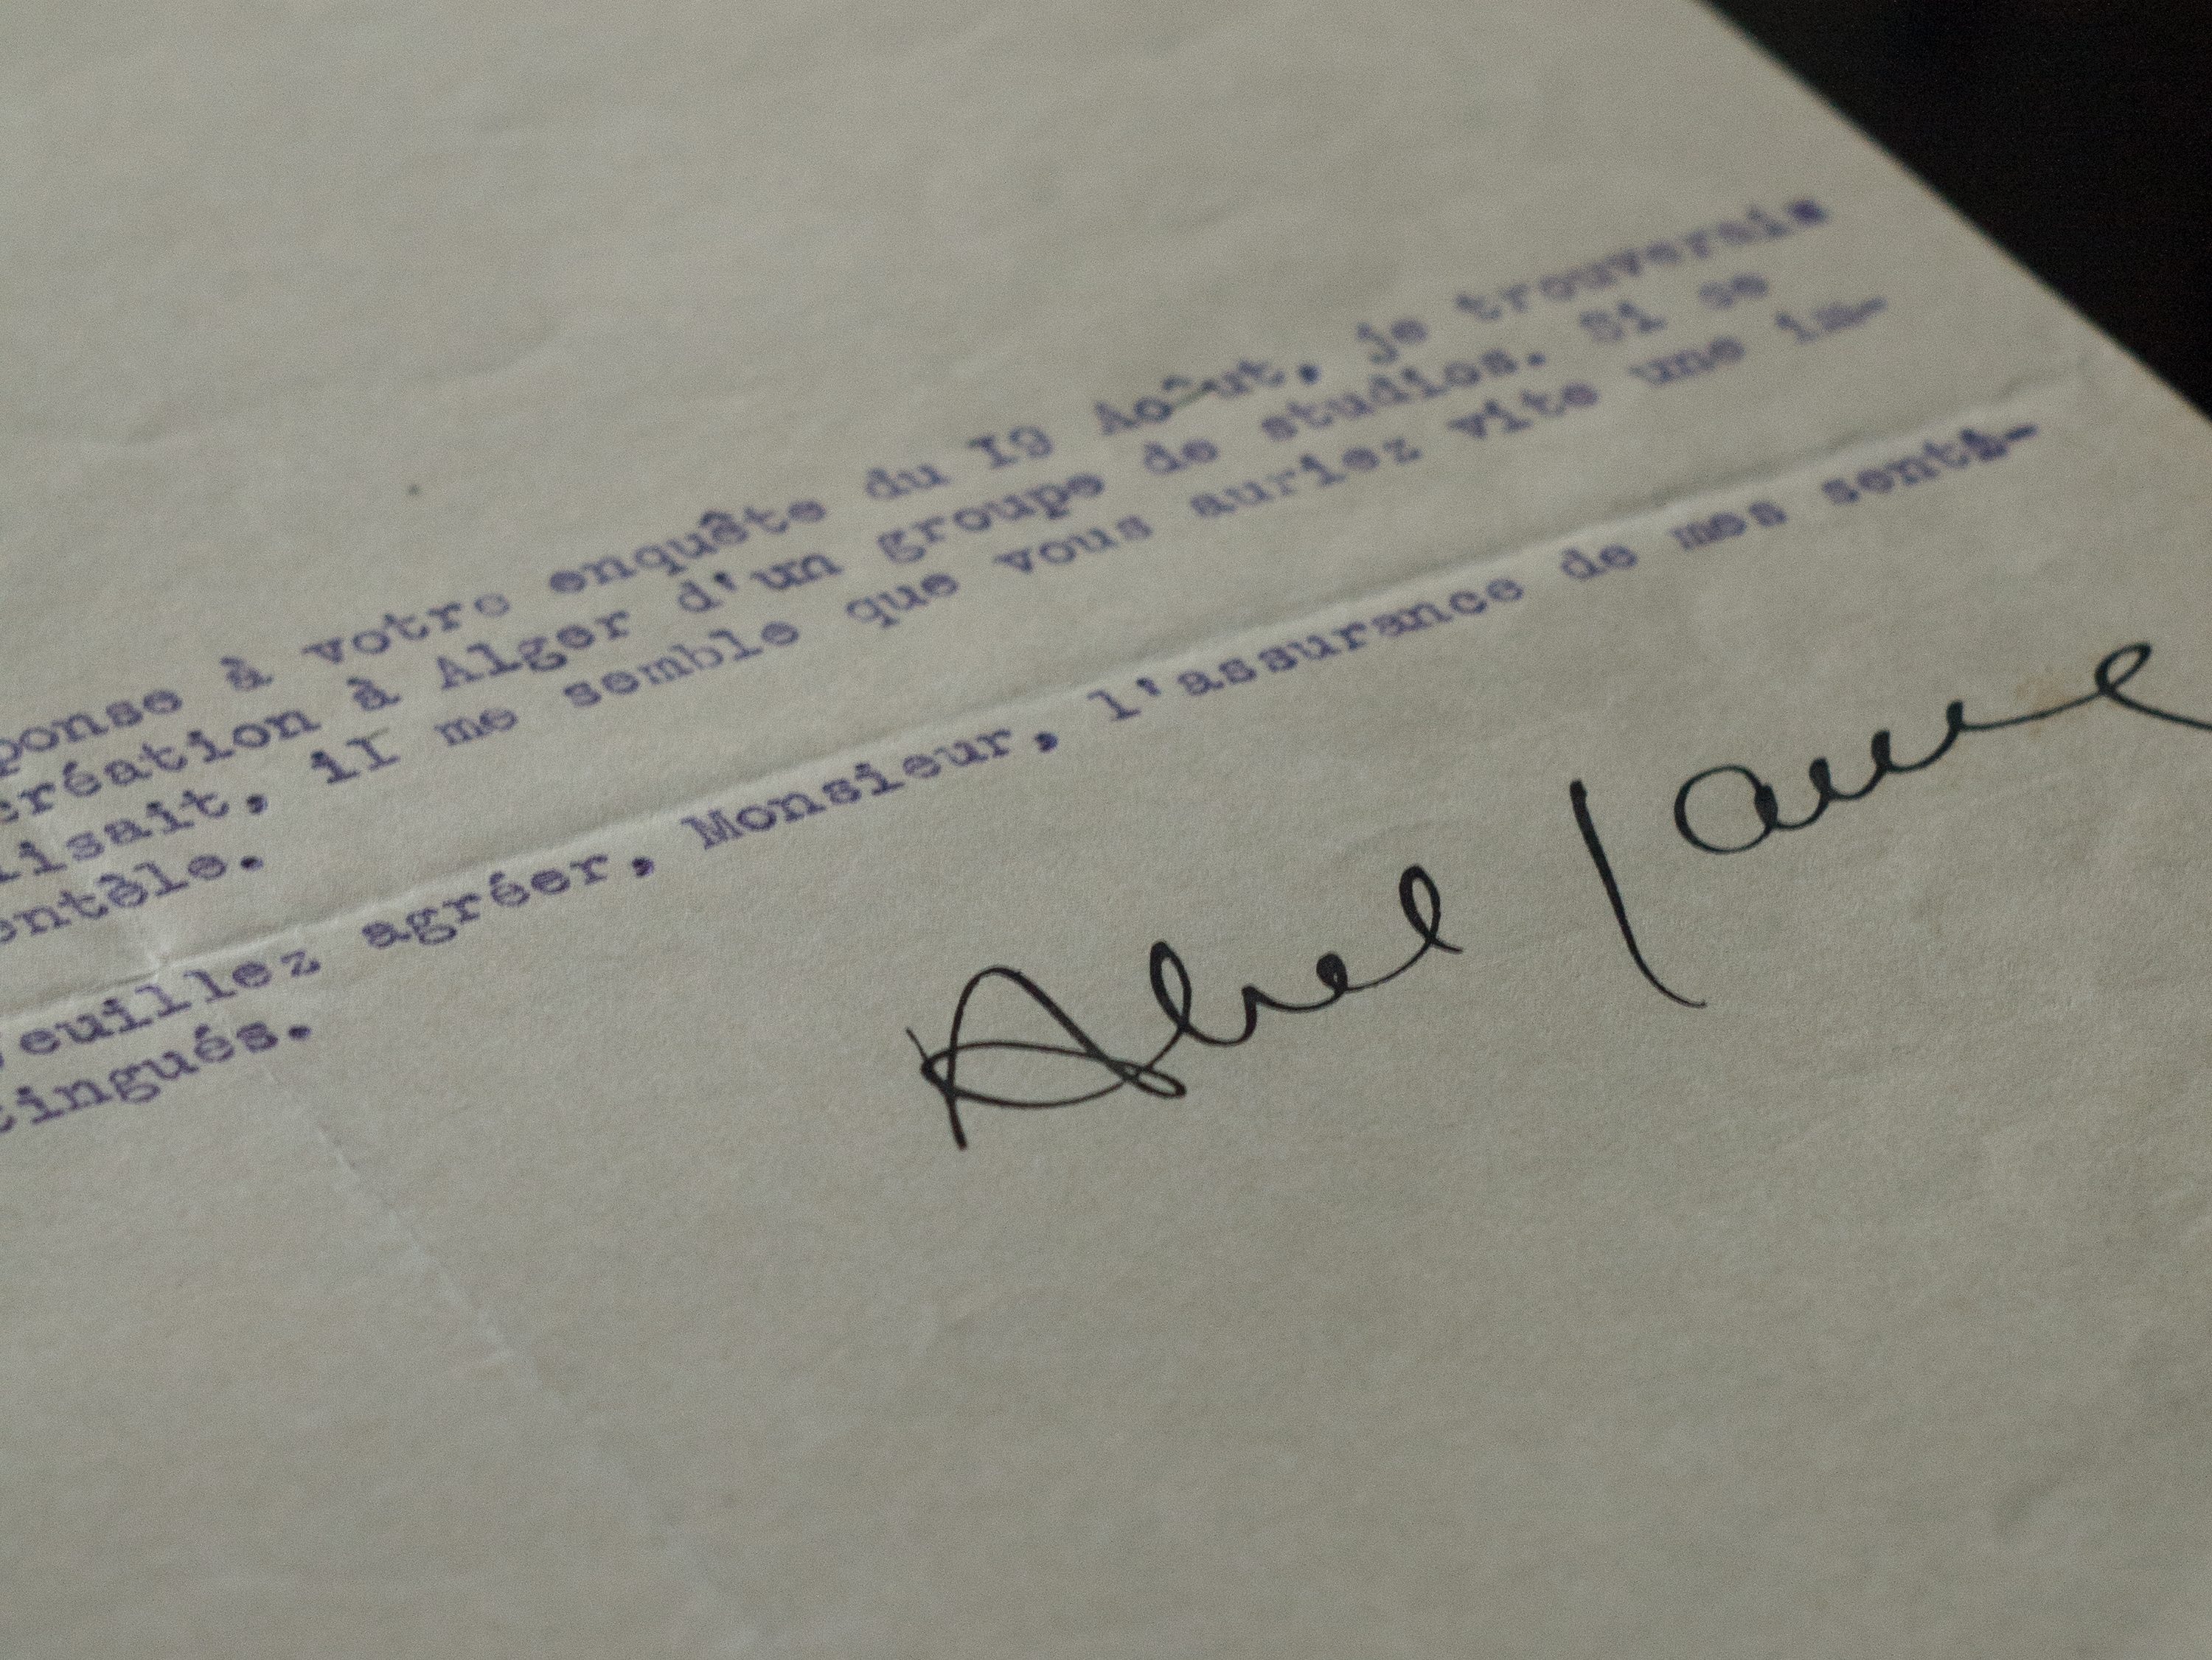 ponse à votre enquête du I9 Août, je trouverais
création à Alger d'un groupe de studios. Si se
lisait, iI me semble que vous auriez vite une im-
entèle.
Veuillez agréer, Monsieur, l'assurance de mes senti-
tingués.
Abel